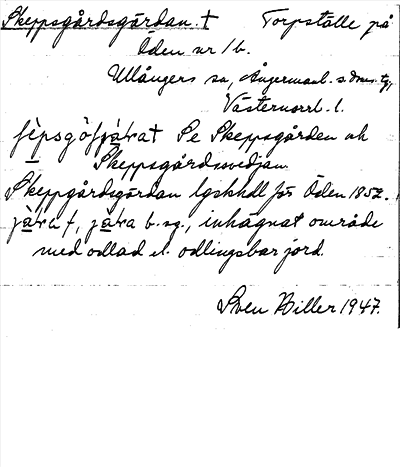 Skeppsgårdsgärdan. † Torpställe på
Öden nr 1 b.
Ullångers sn, Ångermanl. s. dmr. tg,
Västernorrl. l.
Se Skeppsgården och
Skeppsgårdssvedjan.
Skeppsgårdsgärdan lgskhdl för Öden 1852.
jära f, jära b. sg., inhägnat område
med odlad el. odlingsbar jord.
Sven Hiller 1947.